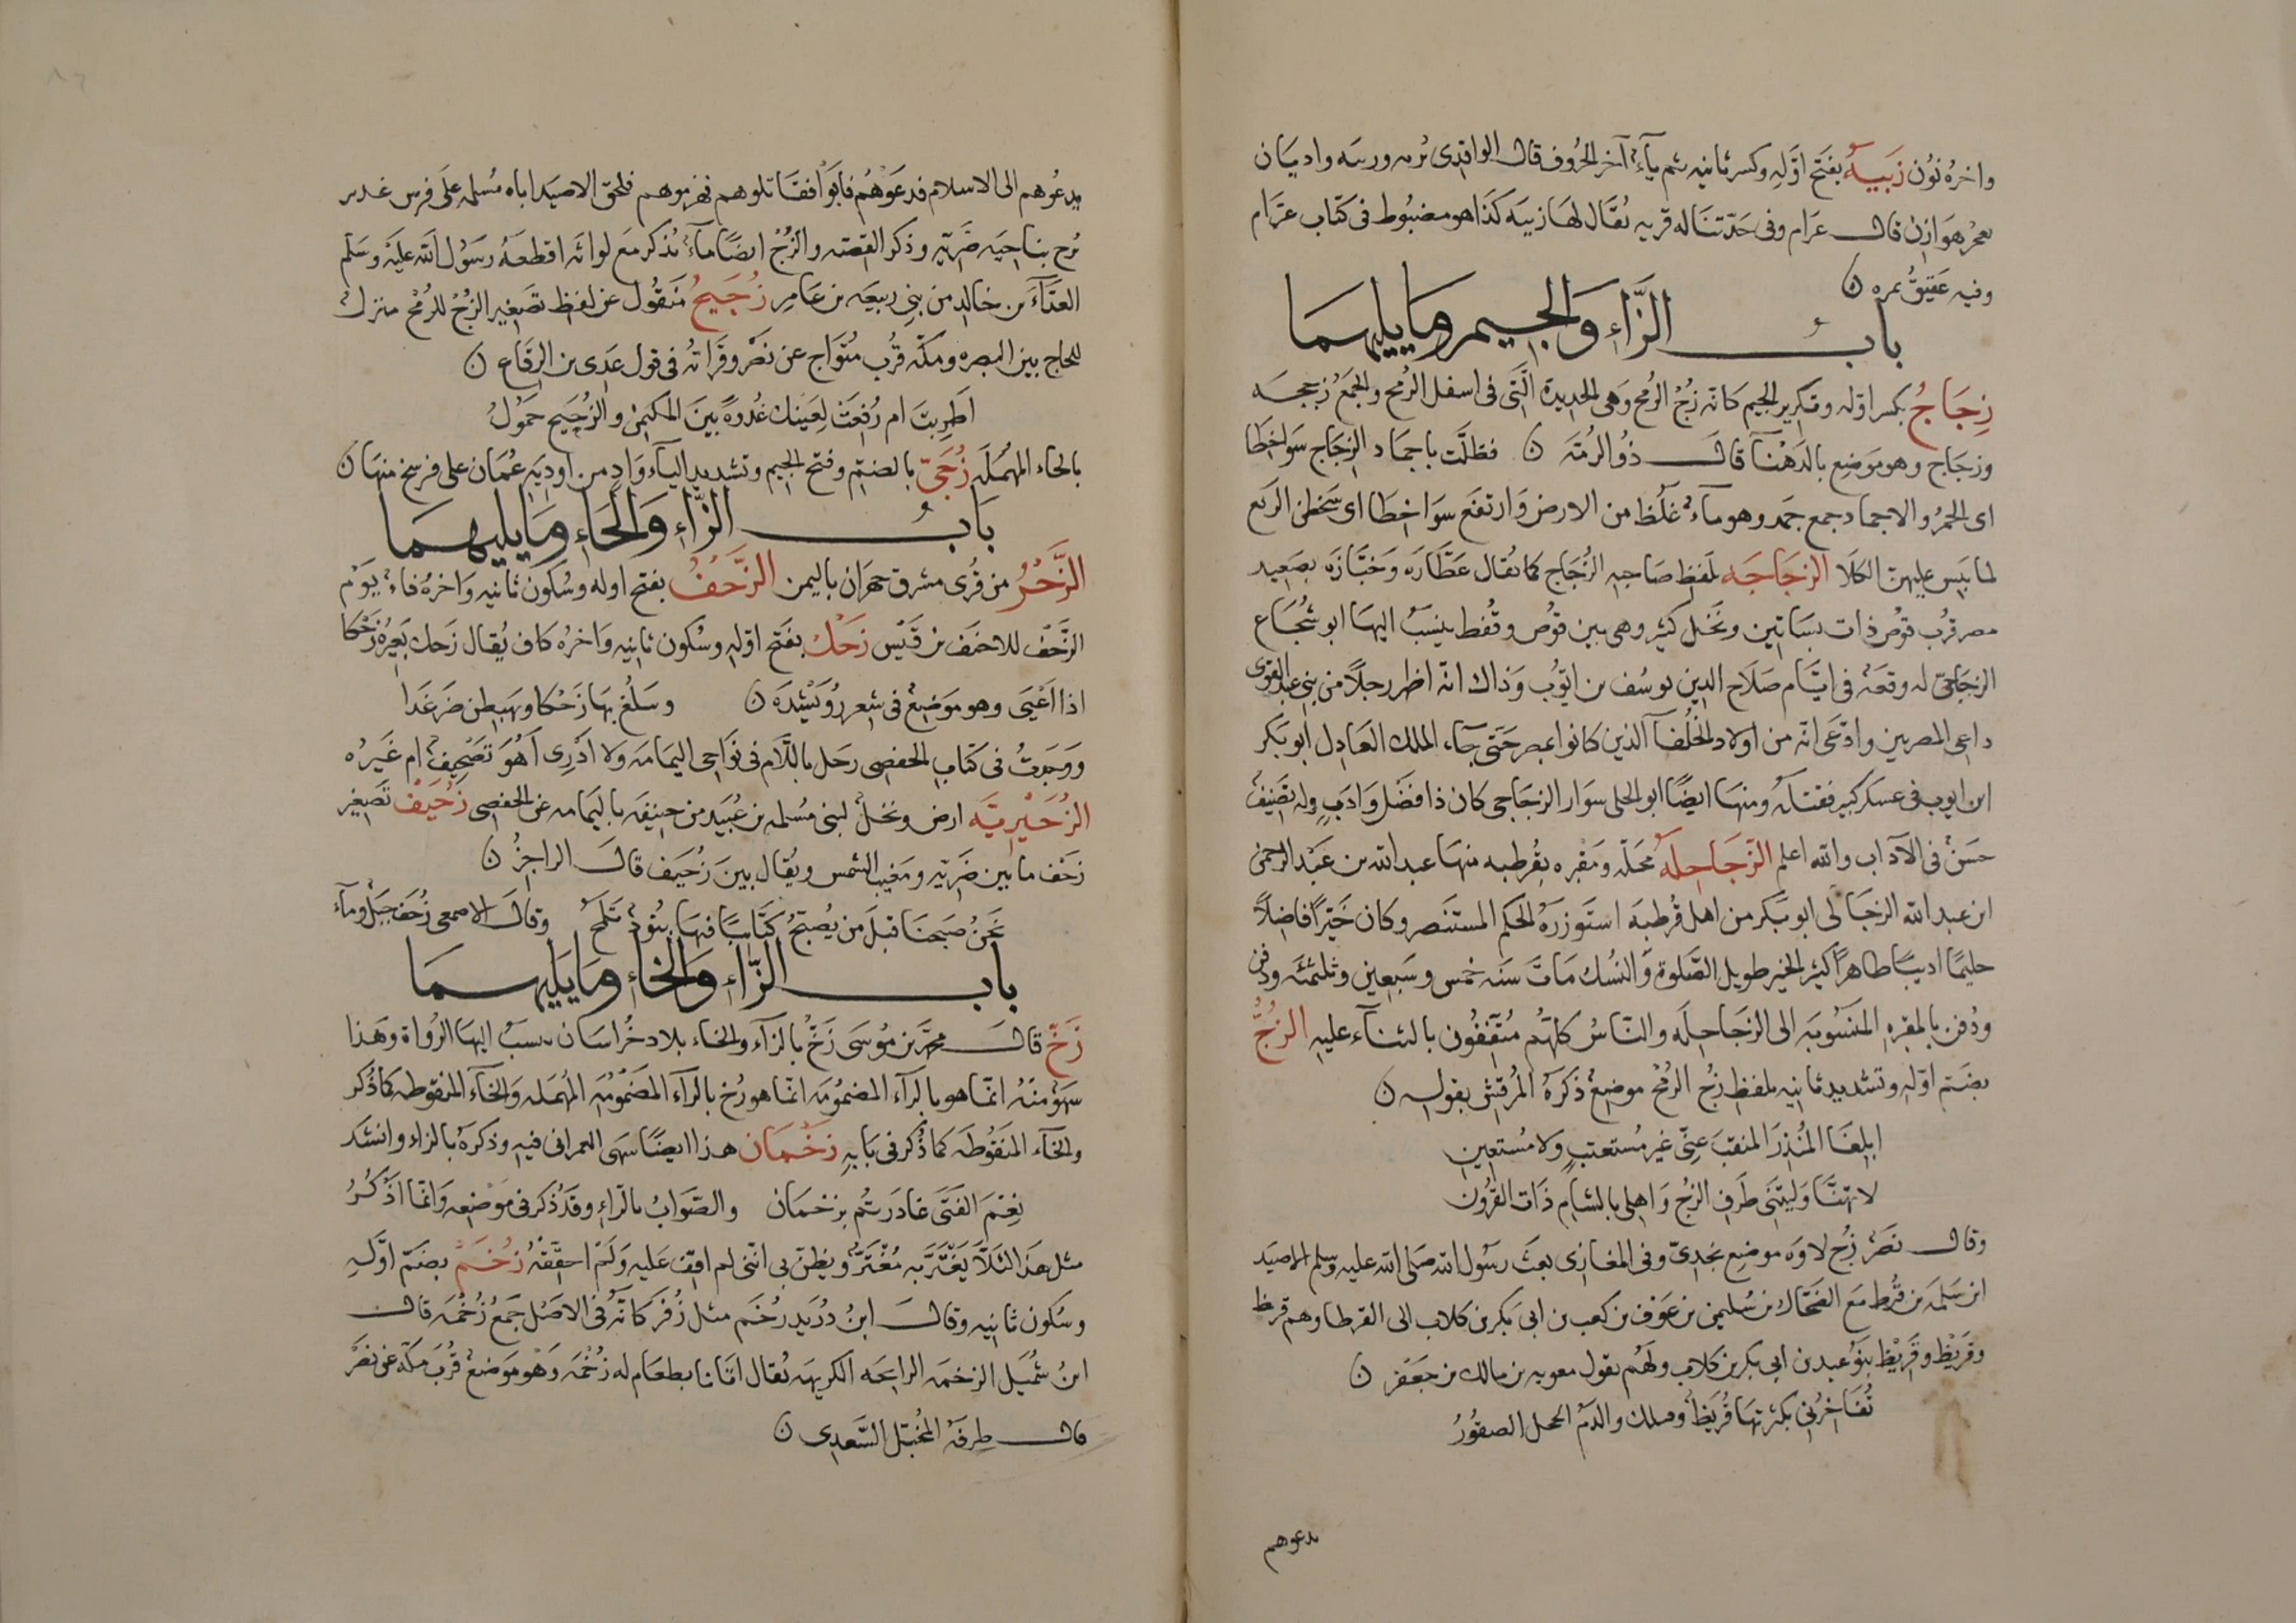 واخره نون زَبِيهُ بفتح اوّله وكسر ثانيه ثم يآء آخر الحروف قال الواقدى تربه وربيه واديان
بعجز هوازن قال عرام وفى حدّ تباله قريه يُقال لها زبيه كذا هو مضبوط فى كتاب عرّام
وفيه عقيق تمره ن
بابُ الزَّاءِ وَالجِيمِ وَمَا يَلِيهِمَا
زِجَاجُ بكسر اوّله وتكرير الجيم كانّه زُجّ الرُمح وهى الحديدة الّتى فى اسفل الرُمح والجَمعُ زِججه
وزجَاج وهو موَضِع بالدَهْنآ قال ذُو الرُمّة ن فظلّت باجماد الزجاج سَواخطا
اى الحمُر والاجماد جمع جمَد وهو مآء غلُظ من الارض وَارتفع سوَاخطا اى سَخطن الرَبع
لما يَبِس عليهن الكلَا الزجَاجَه بلفظ صَاحبِه الزُجَاج كما يُقال عَطّارَه وَخَبّازَه بصَعيد
مصر قرُب قوُص ذات بسَاتين ونَخْل كثير وهى بين قوُص وقُفط ينسَبُ اليهَا ابو شُجَاع
الزجَاجّى له وقعَة فى ايّام صَلَاح الدين يوسُف بن ايّوب وَذاك انّه اظهر رجلًا من بنى عبد القوى
داعى المصريين وادّعَى انّه من اولاد الخُلفآ الّذين كانوا بمصر حَتّى جآء الملك العَادِل ابو بَكر
ابن ايوب فى عسكر كبير فقتلَهُ ومنهَا ايضًا ابو الحلى سوَار الزجَاجى كان ذا فضل وَادَبٍ وله تَصنيفٌ
حسَنٌ فى الآداب والله اعلم الزَجَاجِلَهُ محَلّه ومَقْبره بقُرطبه منهَا عبد الله بن عَبْد الرحمن
ابن عبد الله الزجَالى ابو بَكر من اهل قُرطبَه استَوزرَهُ الحكم المستَنصر وكان خَيّرًا فاضِلًا
حليمًا اديبًا طاهرًا كثير الخير طويل الصَّلوة وَالنُسك مَاتَ سَنه خمس وسَبعين وثلثمئَه ودفن
ودُفن بالمقبره المنسُوبَه الى الزجَاجِلَه والنَّاسُ كلّهُم مُتّفِقُون بالثنآء عليه الزُجُّ
بضمّ اوّله وتشديد ثانيه بلفظ زُج الرُمح موضِعٌ ذكرَهُ المُرقِش بقوله ن
ابلِغَا المُنذرَ المنقبَ عِنّى غير مُستعتبٍ ولا مُستَعينِ
لا تهنّا وَليتَنى طَرفِ الزُج وَاهلى بالشامِ ذَات القُرُون
وقال نصرٌ زُج لاوَه موضِع نجدىّ وفى المغازى بعثَ رسُول الله صَلى الله عليه وسلم الاصيَد
ابن سَلمَه بن قُرط مَع الضحّاك بن سُليمن بن عَوف بن كعب بن ابى بكر بن كلاب الى القرطا وهم قرط
وقرَيْظ وقَريْظ بنوُ عبد بن ابى بكر بن كلابٍ ولَهُم يقول معويه بن مالك بن جَعفَر ن
تُفَاخِرُنى بكثرتهَا قُريَظٌ وملك والدُم الحجل الصقُورُ
يدعوهم
يدعُوهم الى الاسلام فدعَوْهُم فابَوا فقَاتلوهم فهزموهم فلحق الاصيَد اباه مُسلمه على فرس غدير
بزج بناحِيَه ضَريّه وذكر القِصّه والزُجُّ ايضًا مآءٌ يُذكر مَع لوائه اقطعَهُ رسَوُل الله عليه وسَلم
العدّآءَ بن خالدٍ من بنى ربيعَه بن عَامِر زُجَيجُ منقُول عن لفظ تصَغير الزُجّ للرُمح منزل
للحاج بين البصره ومكّه قرُب سُوَاج عن نصَر وقَراتُه فى قول عَدِى بن الرِقاع ن
اَطَرِبتَ ام رُفِعَت لِعَينك غُدوَةً بينَ المكَيمن والزُجَيح حمُوُلُ
بالحاء المهمَلَه زُجَىّ بالضمّ وفتح الجيم وتشديد اليآء وَادٍ من اودِيَه عُمَان على فرسخ منهَا ن
بَابُ الزَّاءِ وَالحَاءِ وَمَا يَليهمَا
الزَّحْرُ من قُرى مشرق جهرَان باليمن الزَّحْفُ بفتح اوله وسُكون ثانيه وَاخرُه فاءٌ يوَم
الزَّحْف للاحنَف بن قَيْس زَحْك بفَتح اوّله وسُكون ثانيه واخرُه كاف يُقال زَحك بَعِيرُه زَحْكا
اذا اعْيَى وهو موَضِعٌ فى شِعر رُوَيْشِد ن وسَلُغ بهَا زَحْكا ويَهبِطن ضَرغَدا
ووَجدتُ فى كتَابِ الحفصى رحَل باللّام فى نوَاحِى اليمَامَه ولا ادْرِى أهُوَ تَصْحِيفٌ ام غَيرُه
الزُحَيْرِيَّه ارض ونخلٌ لبنى مُسلمه بن عُبَيد من حنيفَه باليمَامه عن الحفصى زُحَيْفٌ تصَغير
زحَف ما بين ضَريّه ومَغيب الشمس ويُقال بينَ زُحَيَف قالَ الراجِزُ ن
نحَنُ صَبحنَا قبلَ من يُصبّحُ كَتَايبًا فيهَا بنُودٌ تلمَحُ وقالَ الاصمعى زُحَف جبَلٌ ومآء
بابُ الزَّاءِ وَالخاءِ وَمَا يَليهمَا
زَخّ قال محمّد بن مُوسَى زَخّ بالزآء والخاء بلاد خُراسَان ينسبُ اليهَا الرُواة وهَذا
سهَوٌ منهُ انمّا هو بالرآء المضمُومَه انمّا هو رُخ بالرآء المضمُومَه المُهمَله وَالخآء المنقوطه كما ذُكر
والخآء المنَقوُطَه كما ذُكر فى بَابِهِ زَخْمَان هذا ايضًا سَهى العمرانى فيه وذكرهُ بالزاء وانشد
نِعْمَ الفَتَى غادَرَتُم بِزَخْمَان والصَوابُ بالرّاءِ وقَد ذُكر فى موَضعِه وَانمّا اذَكُرُ
مثل هذا لئَلّا يَغْتَرَّبه مُغْتَرٌّ ويظن بى انّنى لم اقِف عَليه وَلَمْ احققْهُ زُخْمٌ بضمّ اوّلهِ
وسُكون ثانيه وقالَ ابنُ دُرَيد زخَم مثل زُفَر كانّهُ فى الاصَل جمَعُ زُخْمَه قال
ابنُ شُمَيل الزخمَه الرايحَه الكريهَه يُقال اتانا بطعَام له زُخْمَه وَهو موَضعٌ قُربَ مكّه عن نصَرْ
قال طرفة المُخبّل السَّعدِى ن